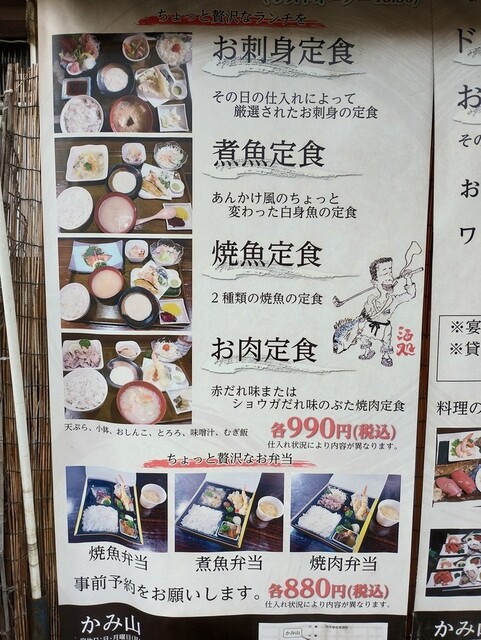 ちょっと贅沢なランチを
お刺身定食
その日の仕入れによって
厳選されたお刺身の定食
煮魚定食
あんかけ風のちょっと
変わった白身魚の定食
焼魚定食
2種類の焼魚の定食
酒処
お肉定食
赤だれ味または
ショウガだれ味のぶた焼肉定食
天ぷら、小鉢、おしんこ、とろろ、味噌汁、むぎ飯
各990円(税込)
仕入れ状況により内容が異なります。
ちょっと贅沢なお弁当
焼魚弁当
煮魚弁当
焼肉弁当
事前予約をお願いします。
各880円(税込)
仕入れ状況により内容が異なります。
かみ山
かみ山
ド
お
その
お
ワ
※宴
※貸
料理の
かみ